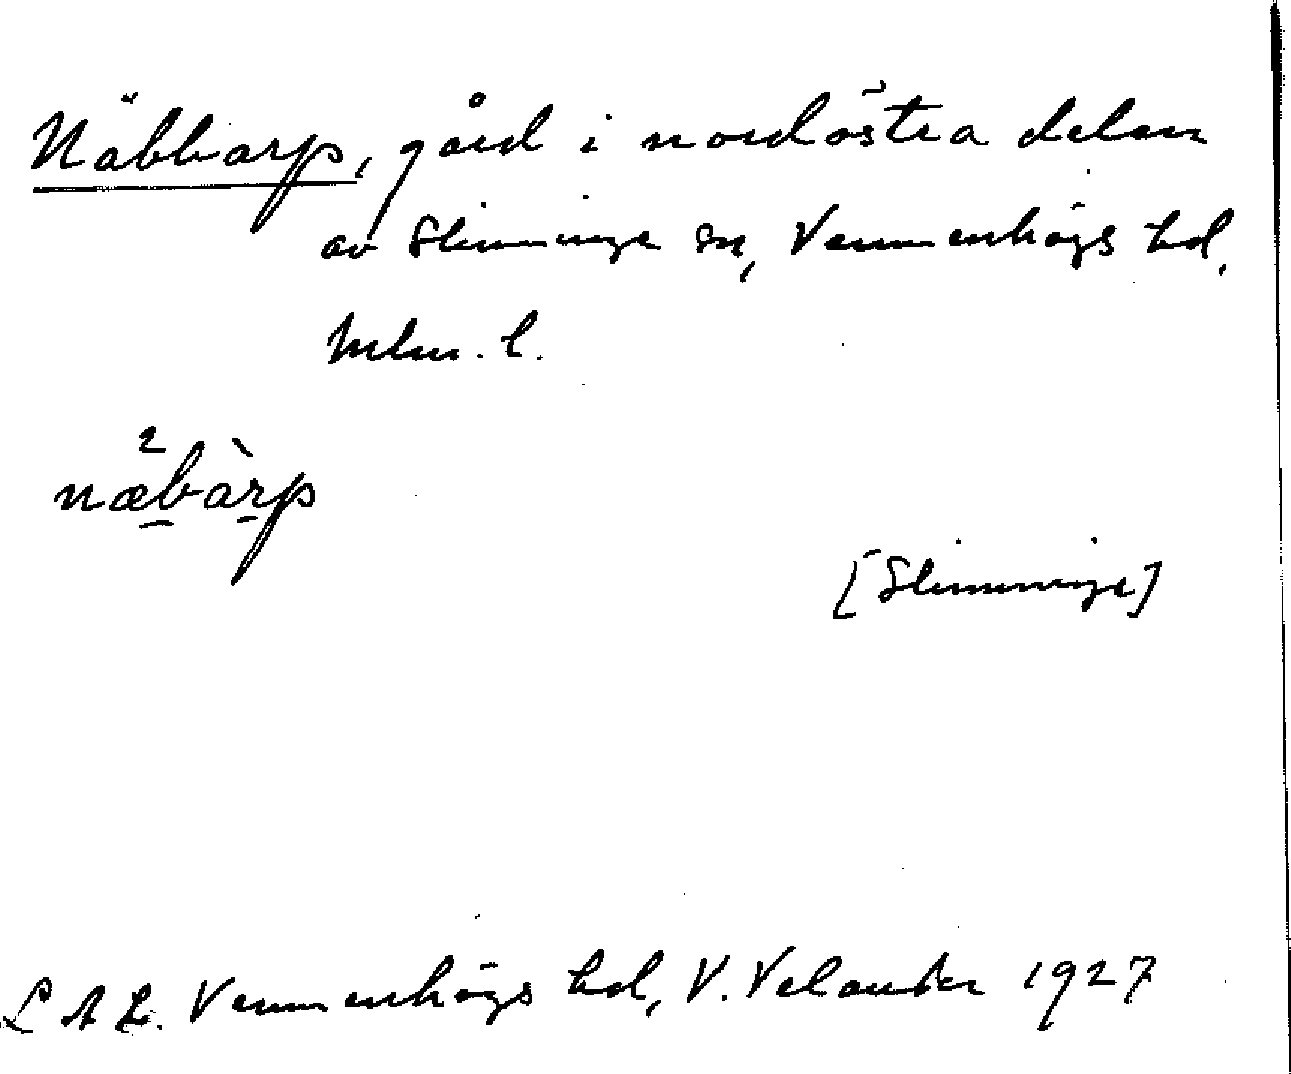 Näbbarp, gård i nordöstra delen
av Slimminge sn, Vemmenhögs hd,
Mlm. l.
næ²bàrp
[Slimminge]
L A L. Vemmenhögs hd, V. Velander 1927